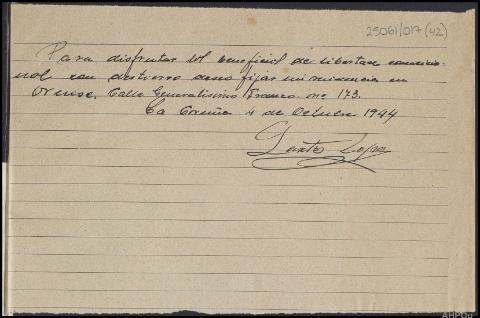 25061/017(42)
Para disfrutar del beneficio de libertad condicio-
nal con destierro deseo fijar mi residencia en
Orense, Calle Generalisimo Franco nº 173.
La Coruña 4 de Octubre 1944
Santos Lopez
AHPOu